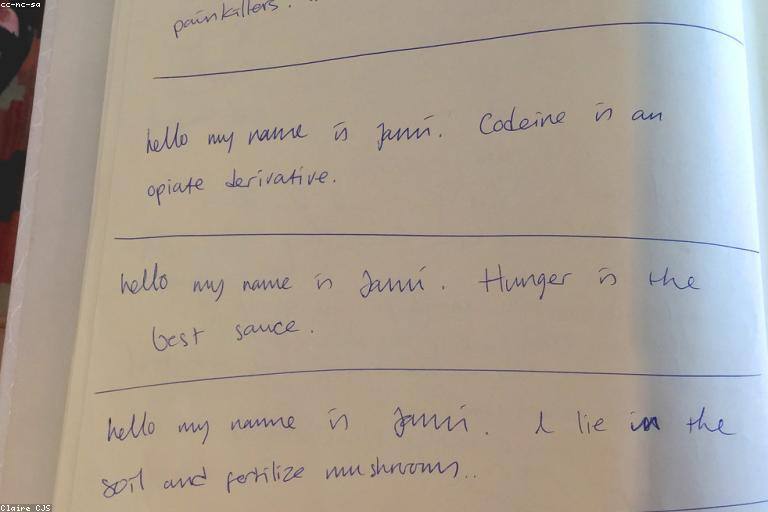 cc-nc-sa
painkillers.
hello my name is Jami. Codeine is an
opiate derivative.
hello my name is Jami. Hunger is the
best sauce.
hello my name is Jami. I lie in the
soil and fertilize mushrooms..
Claire CJS